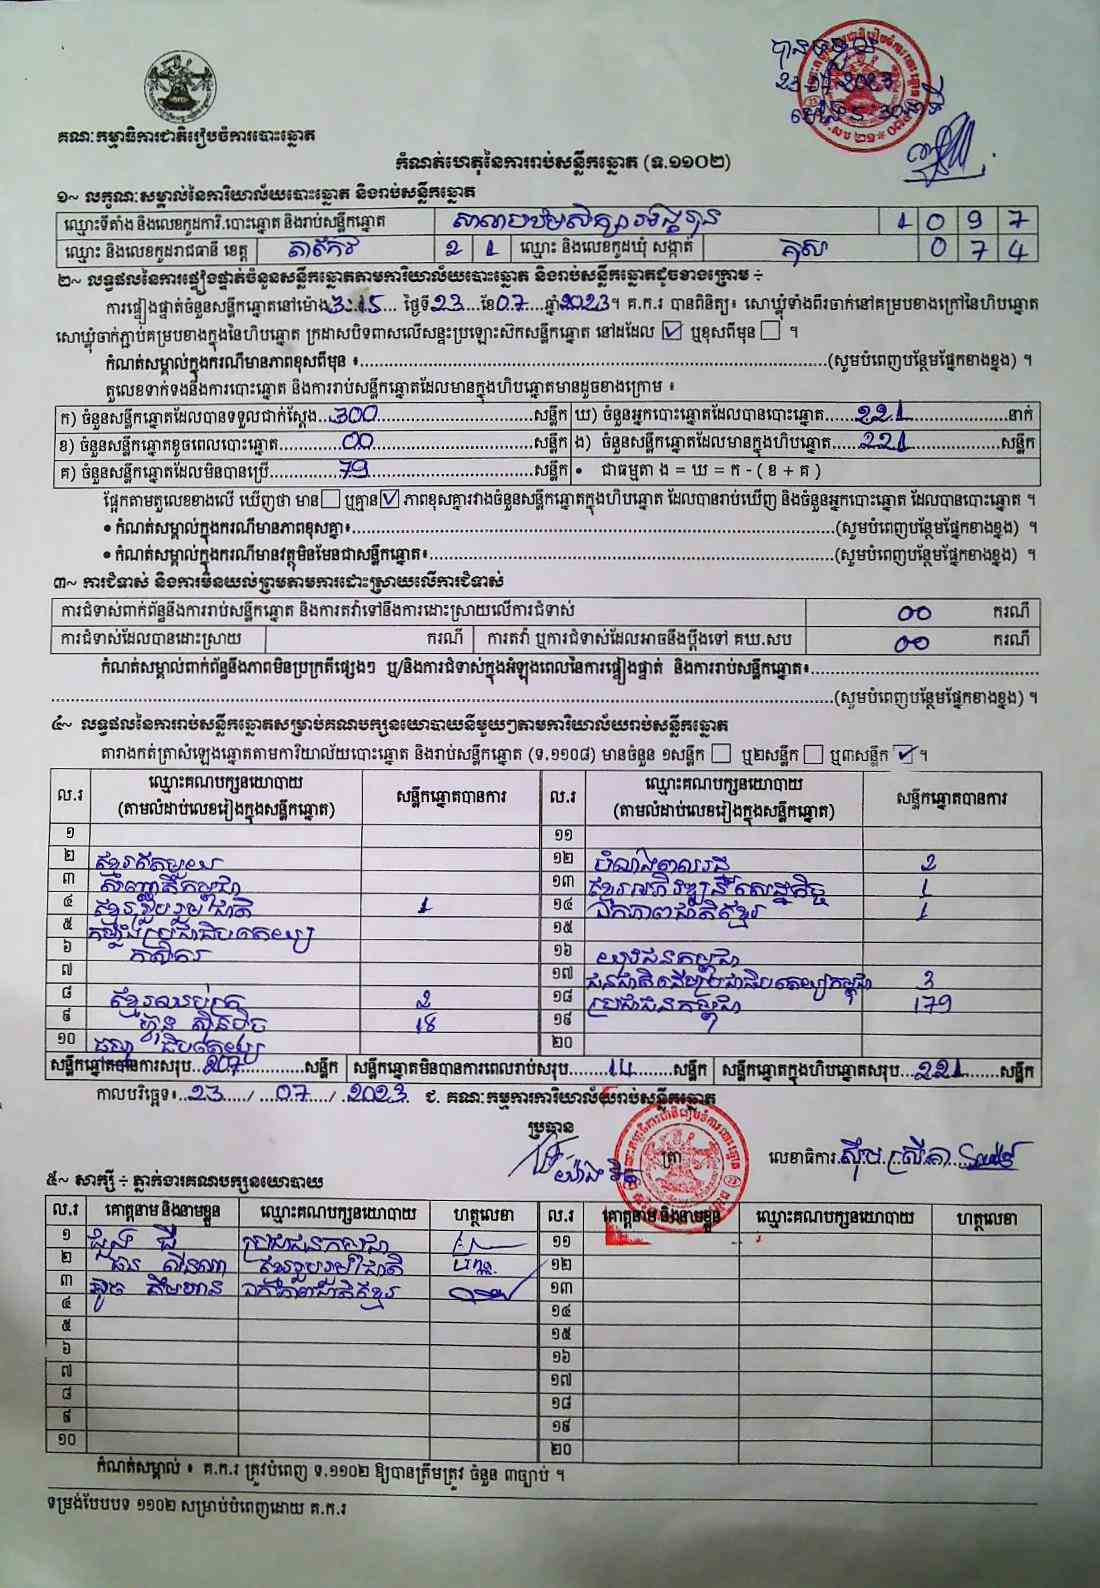 បានទទួល
23.07.2023
គណៈកម្មាធិការជាតិរៀបចំការបោះឆ្នោត
កំណត់ហេតុនៃការរាប់សន្លឹកឆ្នោត (ទ.១១០២)
១~ លក្ខណៈសម្គាល់នៃការិយាល័យបោះឆ្នោត និងរាប់សន្លឹកឆ្នោត
ឈ្មោះទីតាំង និងលេខកូដការិ.បោះឆ្នោត និងរាប់សន្លឹកឆ្នោត សាលាបឋមសិក្សា 1 0 9 7
ឈ្មោះ និងលេខកូដរាជធានី ខេត្ត តាកែវ 2 1 ឈ្មោះ និងលេខកូដឃុំ សង្កាត់ គុស 0 7 4
២~ លទ្ធផលនៃការផ្ទៀងផ្ទាត់ចំនួនសន្លឹកឆ្នោតតាមការិយាល័យបោះឆ្នោត និងរាប់សន្លឹកឆ្នោតដូចខាងក្រោម ÷
ការផ្ទៀងផ្ទាត់ចំនួនសន្លឹកឆ្នោតនៅម៉ោង 3:15 ថ្ងៃទី 23 ខែ 07 ឆ្នាំ 2023។ គ.ក.រ បានពិនិត្យ៖ សោឃ្លុំទាំងពីរចាក់នៅគម្របខាងក្រៅនៃហិបឆ្នោត
សោឃ្លុំចាក់ភ្ជាប់គម្របខាងក្នុងនៃហិបឆ្នោត ក្រដាសបិទពាសលើសន្ទះប្រឡោះស៊កសន្លឹកឆ្នោត នៅដដែល ☑ ឬខុសពីមុន ☐ ។
កំណត់សម្គាល់ក្នុងករណីមានភាពខុសពីមុន ៖ (សូមបំពេញបន្ថែមផ្នែកខាងខ្នង) ។
តួលេខទាក់ទងនឹងការបោះឆ្នោត និងការរាប់សន្លឹកឆ្នោតដែលមានក្នុងហិបឆ្នោតមានដូចខាងក្រោម ៖
ក) ចំនួនសន្លឹកឆ្នោតដែលបានទទួលជាក់ស្តែង 300 សន្លឹក ឃ) ចំនួនអ្នកបោះឆ្នោតដែលបានបោះឆ្នោត 221 នាក់
ខ) ចំនួនសន្លឹកឆ្នោតខូចពេលបោះឆ្នោត 00 សន្លឹក ង) ចំនួនសន្លឹកឆ្នោតដែលមានក្នុងហិបឆ្នោត 221 សន្លឹក
គ) ចំនួនសន្លឹកឆ្នោតដែលមិនបានប្រើ 79 សន្លឹក • ជាធម្មតា ង = ឃ = ក - ( ខ + គ )
ផ្អែកតាមតួលេខខាងលើ ឃើញថា មាន ☐ ឬគ្មាន ☑ ភាពខុសគ្នារវាងចំនួនសន្លឹកឆ្នោតក្នុងហិបឆ្នោត ដែលបានរាប់ឃើញ និងចំនួនអ្នកបោះឆ្នោត ដែលបានបោះឆ្នោត ។
• កំណត់សម្គាល់ក្នុងករណីមានភាពខុសគ្នា៖ (សូមបំពេញបន្ថែមផ្នែកខាងខ្នង) ។
• កំណត់សម្គាល់ក្នុងករណីមានវត្ថុមិនមែនជាសន្លឹកឆ្នោត៖ (សូមបំពេញបន្ថែមផ្នែកខាងខ្នង) ។
៣~ ការជំទាស់ និងការមិនយល់ព្រមតាមការដោះស្រាយលើការជំទាស់
ការជំទាស់ពាក់ព័ន្ធនឹងការរាប់សន្លឹកឆ្នោត និងការតវ៉ាទៅនឹងការដោះស្រាយលើការជំទាស់ 00 ករណី
ការជំទាស់ដែលបានដោះស្រាយ ករណី ការតវ៉ា ឬការជំទាស់ដែលអាចនឹងប្តឹងទៅ គឃ.សប 00 ករណី
កំណត់សម្គាល់ពាក់ព័ន្ធនឹងភាពមិនប្រក្រតីផ្សេងៗ ឬ/និងការជំទាស់ក្នុងអំឡុងពេលនៃការផ្ទៀងផ្ទាត់ និងការរាប់សន្លឹកឆ្នោត៖
(សូមបំពេញបន្ថែមផ្នែកខាងខ្នង) ។
៤~ លទ្ធផលនៃការរាប់សន្លឹកឆ្នោតសម្រាប់គណបក្សនយោបាយនីមួយៗតាមការិយាល័យរាប់សន្លឹកឆ្នោត
តារាងកត់ត្រាសំឡេងឆ្នោតតាមការិយាល័យបោះឆ្នោត និងរាប់សន្លឹកឆ្នោត (ទ.១១០៨) មានចំនួន ១សន្លឹក ☐ ឬ២សន្លឹក ☐ ឬ៣សន្លឹក ☑ ។
ល.រ ឈ្មោះគណបក្សនយោបាយ សន្លឹកឆ្នោតបានការ ល.រ ឈ្មោះគណបក្សនយោបាយ សន្លឹកឆ្នោតបានការ
(តាមលំដាប់លេខរៀងក្នុងសន្លឹកឆ្នោត) (តាមលំដាប់លេខរៀងក្នុងសន្លឹកឆ្នោត)
១ ១១
២ ខ្មែរតែមួយ ១២ 2
៣ សញ្ជាតិកម្ពុជា ១៣ ខ្មែរអភិវឌ្ឍន៍សេដ្ឋកិច្ច 1
៤ ខ្មែររួបរួមជាតិ 1 ១៤ ឯកភាពជាតិខ្មែរ 1
៥ កម្លាំងប្រជាធិបតេយ្យ ១៥
៦ កសិករ ១៦ យុវជនកម្ពុជា
៧ ១៧ ជនជាតិដើមប្រជាធិបតេយ្យកម្ពុជា 3
៨ ខ្មែរឈប់ក្រ 2 ១៨ ប្រជាជនកម្ពុជា 179
៩ ហ៊្វុនស៊ិនប៉ិច 18 ១៩
១០ ធម្មាធិបតេយ្យ ២០
សន្លឹកឆ្នោតបានការសរុប 207 សន្លឹក សន្លឹកឆ្នោតមិនបានការពេលរាប់សរុប 14 សន្លឹក សន្លឹកឆ្នោតក្នុងហិបឆ្នោតសរុប 221 សន្លឹក
កាលបរិច្ឆេទ៖ 23 / 07 / 2023 ជ. គណៈកម្មការការិយាល័យរាប់សន្លឹកឆ្នោត
ប្រធាន ត្រា លេខាធិការ ស៊ឹម ស្រីគា
៥~ សាក្សី ÷ ភ្នាក់ងារគណបក្សនយោបាយ
ល.រ គោត្តនាម និងនាមខ្លួន ឈ្មោះគណបក្សនយោបាយ ហត្ថលេខា ល.រ គោត្តនាម និងនាមខ្លួន ឈ្មោះគណបក្សនយោបាយ ហត្ថលេខា
១ ប្រជាជនកម្ពុជា ១១
២ ខ្មែររួបរួមជាតិ ១២
៣ ឯកភាពជាតិខ្មែរ ១៣
៤ ១៤
៥ ១៥
៦ ១៦
៧ ១៧
៨ ១៨
៩ ១៩
១០ ២០
កំណត់សម្គាល់ ៖ គ.ក.រ ត្រូវបំពេញ ទ.១១០២ ឱ្យបានត្រឹមត្រូវ ចំនួន ៣ច្បាប់ ។
ទម្រង់បែបបទ ១១០២ សម្រាប់បំពេញដោយ គ.ក.រ